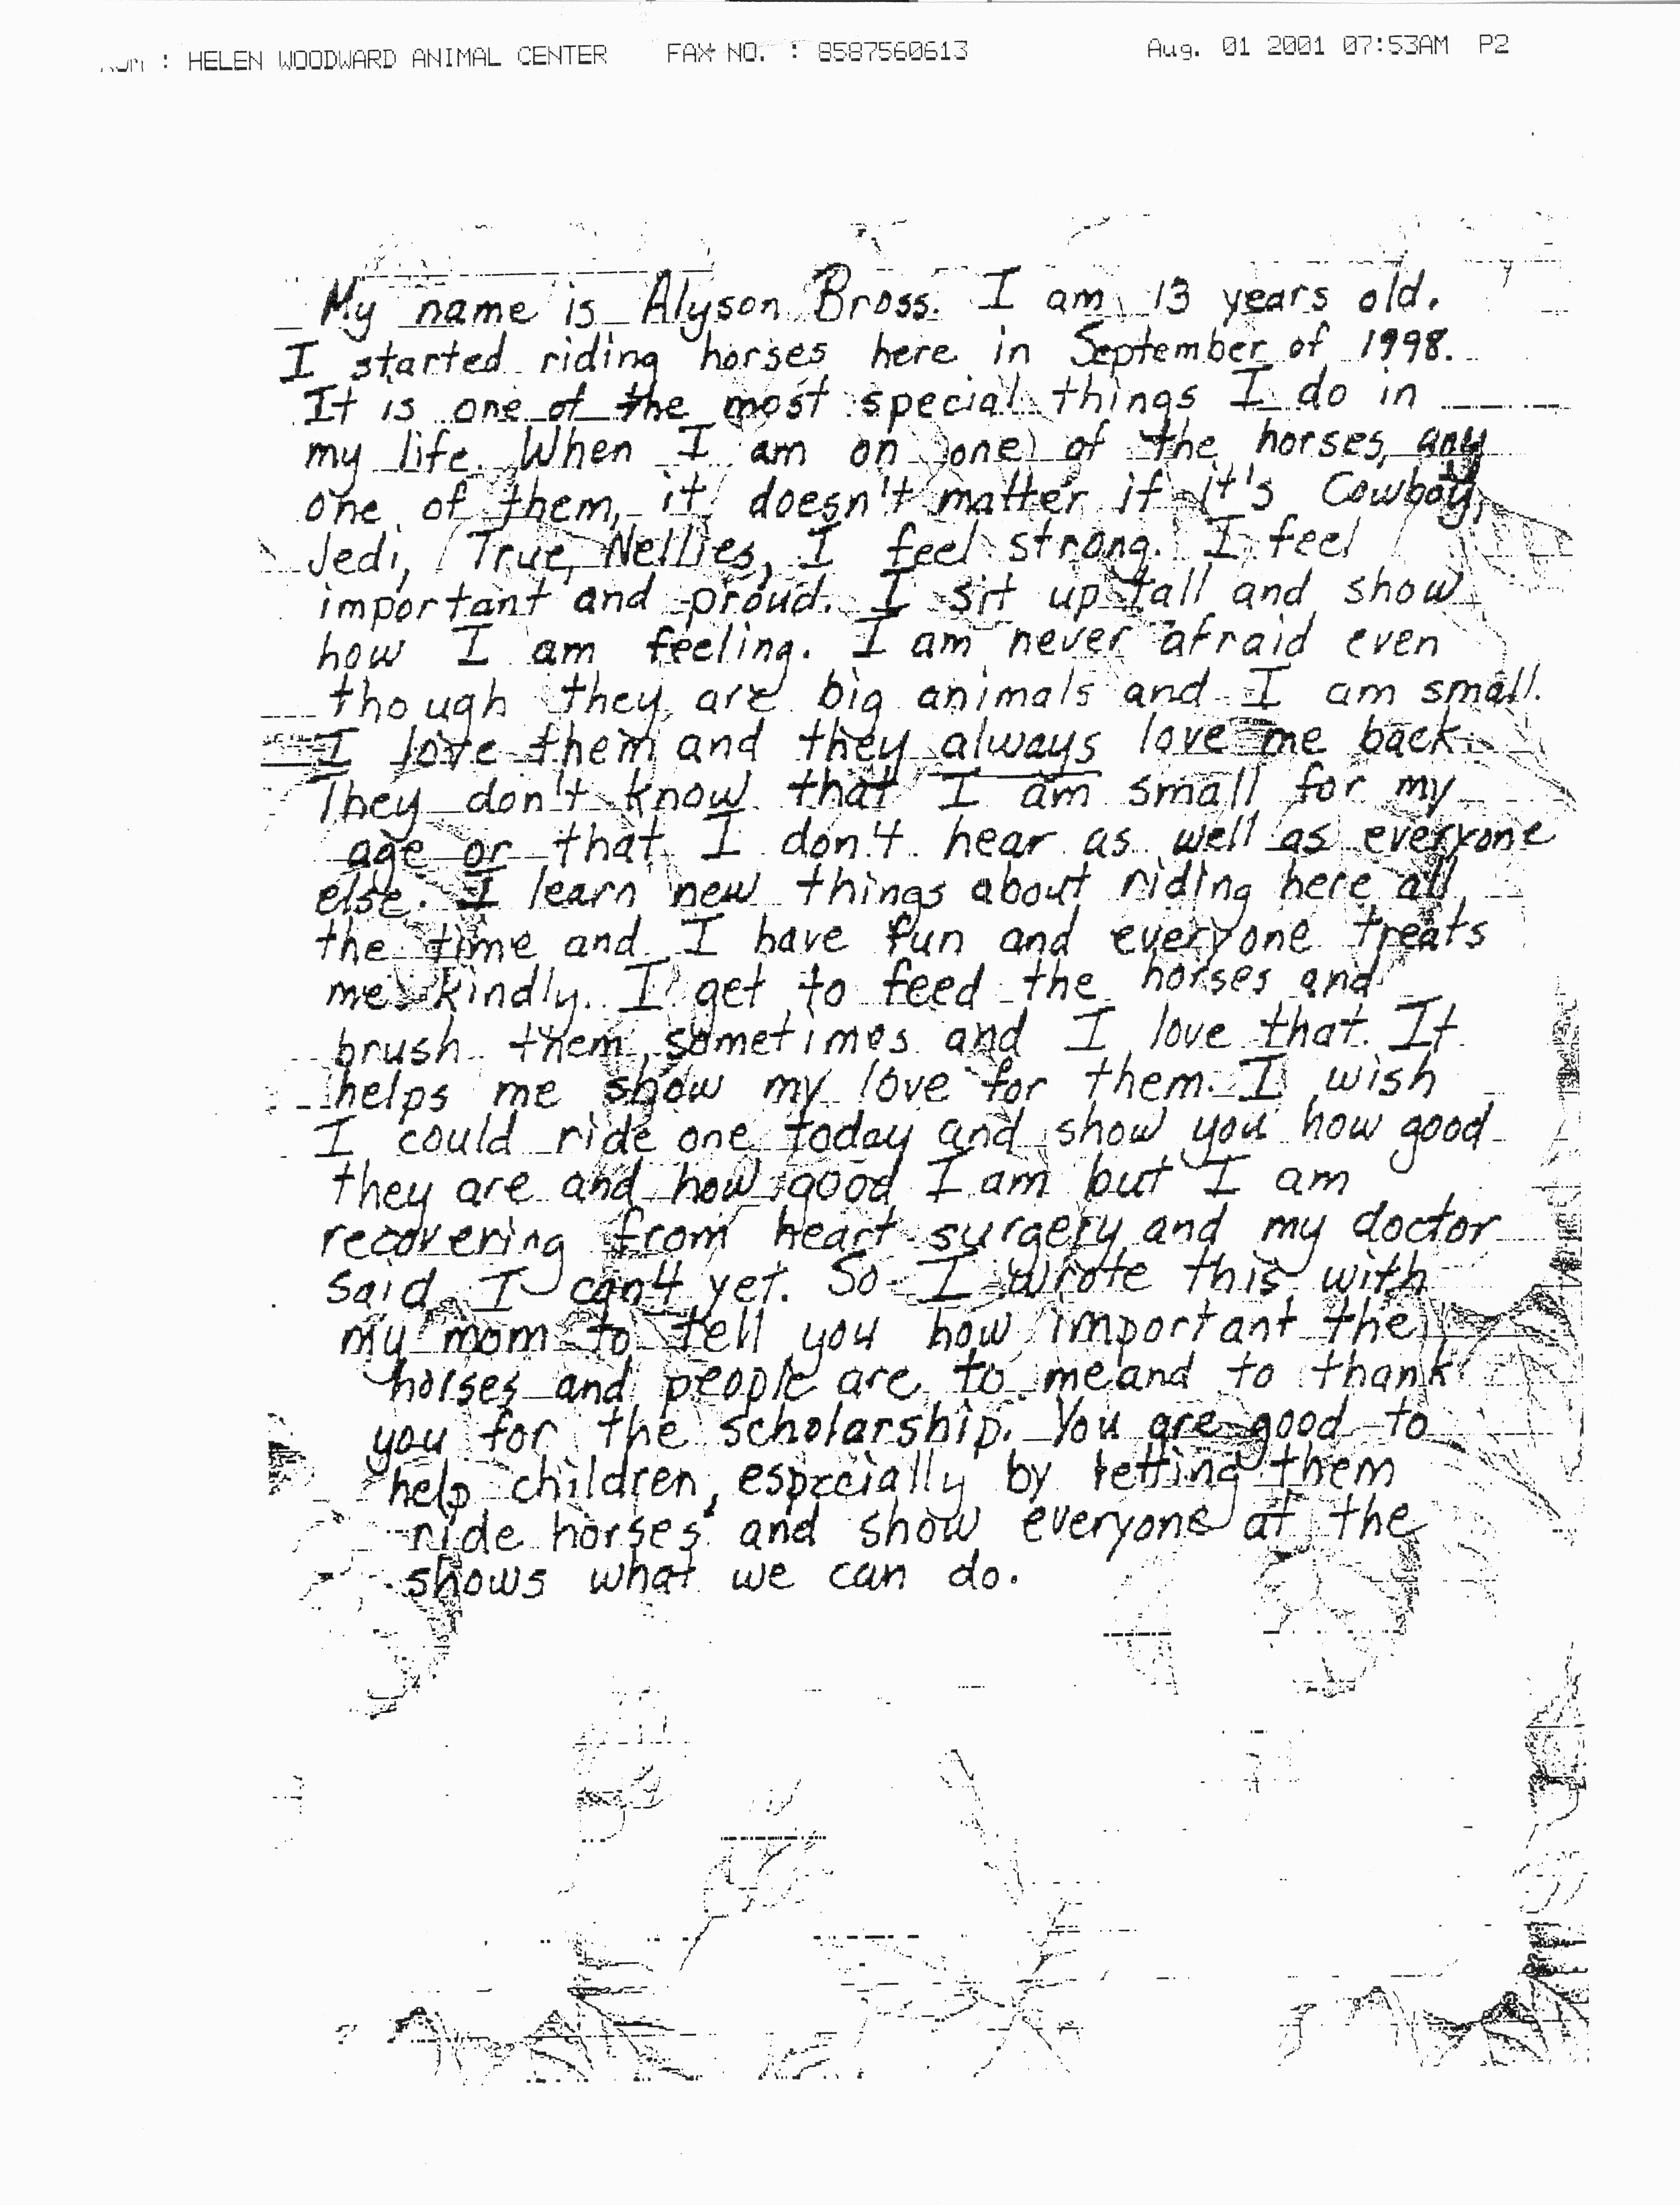 : HELEN WOODWARD ANIMAL CENTER FAX NO. : 8587560613 Aug. 01 2001 07:53AM P2
My name is Alyson Bross. I am 13 years old.
I started riding horses here in September of 1998.
It is one of the most special things I do in
my life. When I am on one of the horses, any
one of them, it doesn't matter if it's Cowboy,
Jedi, True, Nellies, I feel strong. I feel
important and proud. I sit up tall and show
how I am feeling. I am never afraid even
though they are big animals and I am small.
I love them and they always love me back.
They don't know that I am small for my
age or that I don't hear as well as everyone
else. I learn new things about riding here all
the time and I have fun and everyone treats
me kindly. I get to feed the horses and
brush them sometimes and I love that. It
helps me show my love for them. I wish
I could ride one today and show you how good
they are and how good I am but I am
recovering from heart surgery and my doctor
said I can't yet. So I wrote this with
my mom to tell you how important the
horses and people are to me and to thank
you for the scholarship. You are good to
help children, especially by letting them
ride horses and show everyone at the
shows what we can do.